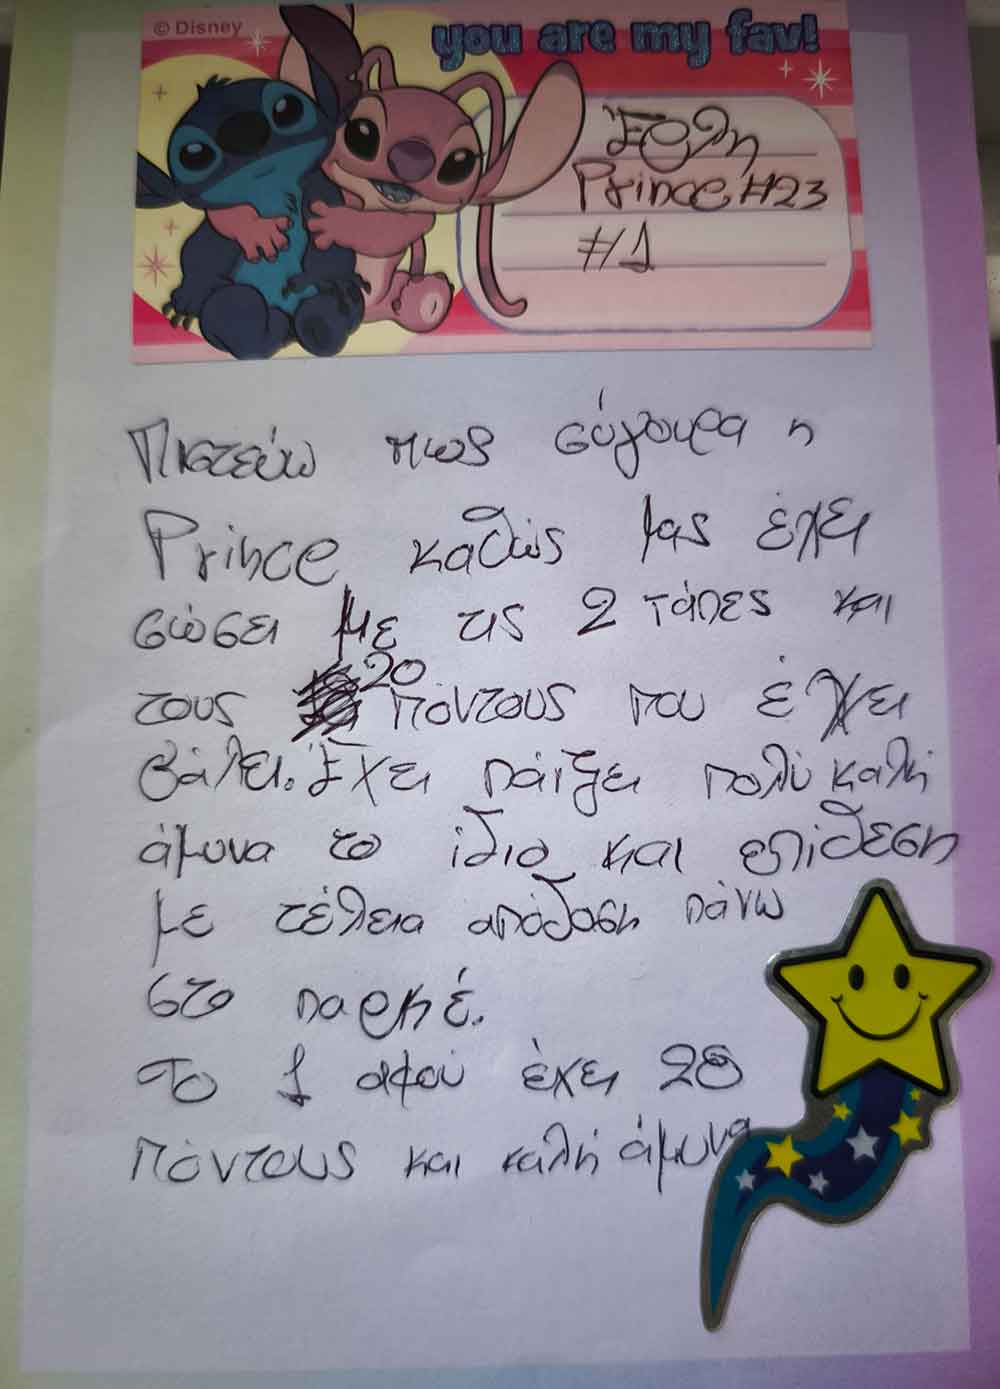 © Disney
you are my fav!
Έρλη
Prince #23
#1
Πιστεύω πως σύγουρα η
Prince καθώς μας έχει
σώσει με τις 2 τάπες και
τους 20 πόντους που έχει
βάλει. Έχει παίξει πολύ καλή
άμυνα το ίδιο και επίθεση
με τέλεια απόδοση πάνω
στο παρκέ.
Το 1 αφού έχει 20
πόντους και καλή άμυνα